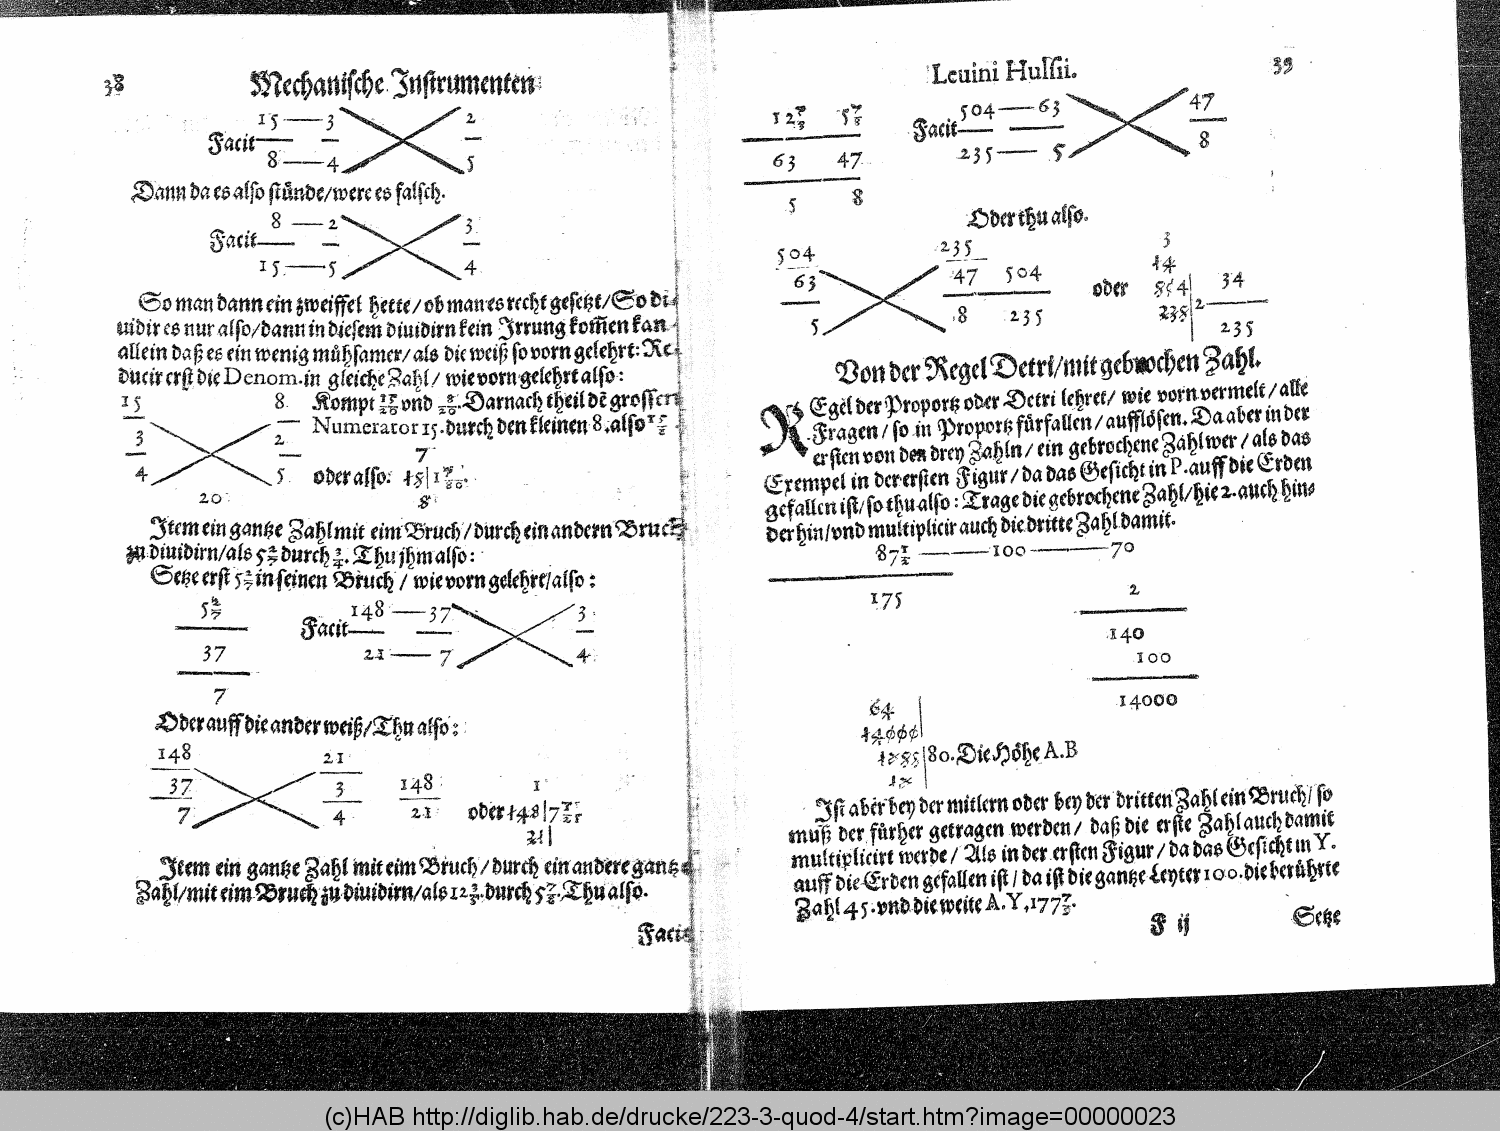 38
Mechanische Instrumenten
15 — 3 2
Facit
8 — 4 5
Dann da es also stünde/were es falsch.
8 — 2 3
Facit
15 — 5 4
So man dann ein zweiffel hette/ob man es recht gesetzt/So di-
uidir es nur also/dann in diesem diuidirn kein Irrung kom̃en kan
allein daß es ein wenig mühsamer/als die weiß so vorn gelehrt: Re-
ducir erst die Denom. in gleiche Zahl/ wie vorn gelehrt also:
15 8 Kompt 15/20 vnd 8/20. Darnach theil dē grossern
3 2 Numerator 15. durch den kleinen 8. also 15/8
4 5 oder also. 15 | 1 7/8
7
8
20
Item ein gantze Zahl mit eim Bruch/durch ein andern Bruch
zu diuidirn/als 5 2/7 durch 3/4. Thu jhm also:
Setze erst 5 2/7 in seinen Bruch / wie vorn gelehrt/also:
5 2/7
37
7
148 — 37 3
Facit
21 — 7 4
Oder auff die ander weiß/Thu also:
148 21
37 3 148 1
7 4 21 oder 148 | 7 1/21
21
Item ein gantze Zahl mit eim Bruch/durch ein andere gantze
Zahl/mit eim Bruch zu diuidirn/als 12 3/5. durch 5 7/8. Thu also.
Facit
Leuini Hulsii.
39
12 3/5 5 7/8
63 47
5 8
504 — 63 47
Facit
235 — 5 8
Oder thu also.
504 235
63 47 504
5 8 235
oder
3
14
504
235
2 34
235
Von der Regel Detri/mit gebrochen Zahl.
REgel der Proportz oder Detri lehret/ wie vorn vermelt/alle
Fragen/so in Proportz fürfallen/aufflösen. Da aber in der
ersten von den drey Zahln/ein gebrochene Zahl wer/als das
Exempel in der ersten Figur/da das Gesicht in P. auff die Erden
gefallen ist/so thu also: Trage die gebrochene Zahl/hie 2. auch hin-
der hin/vnd multiplicir auch die dritte Zahl damit.
87 1/2 — 100 — 70
175 2
140
100
14000
64
14000
1755 | 80. Die Höhe A.B
17
Ist aber bey der mitlern oder bey der dritten Zahl ein Bruch/ so
muß der fürher getragen werden/ daß die erste Zahl auch damit
multiplicirt werde/ Als in der ersten Figur/da das Gesicht in Y.
auff die Erden gefallen ist/da ist die gantze Leyter 100. die berührte
Zahl 45. vnd die weite A.Y, 177 7/9.
F ij
Setze
(c)HAB http://diglib.hab.de/drucke/223-3-quod-4/start.htm?image=00000023